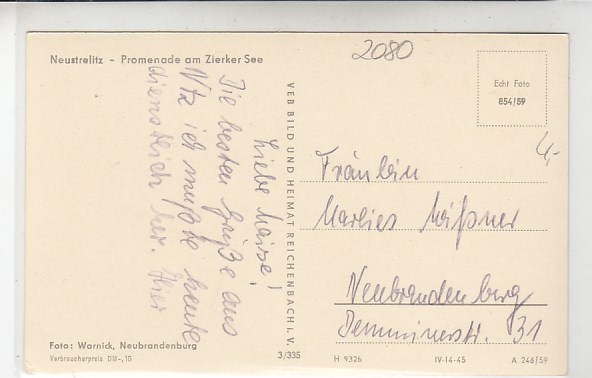 Neustrelitz - Promenade am Zierker See
2080
Echt Foto
854/59
4,-
Liebe
Die besten Grüße aus
Ntz ich mußte heute
dienstlich her. Hier
VEB BILD UND HEIMAT REICHENBACH I. V.
Fräulein
Marlies Mißner
Neubrandenburg
Demminerstr. 31
Foto: Warnick, Neubrandenburg
Verbraucherpreis DM -,15
3/335
H 9326
IV-14-45
A 246/59